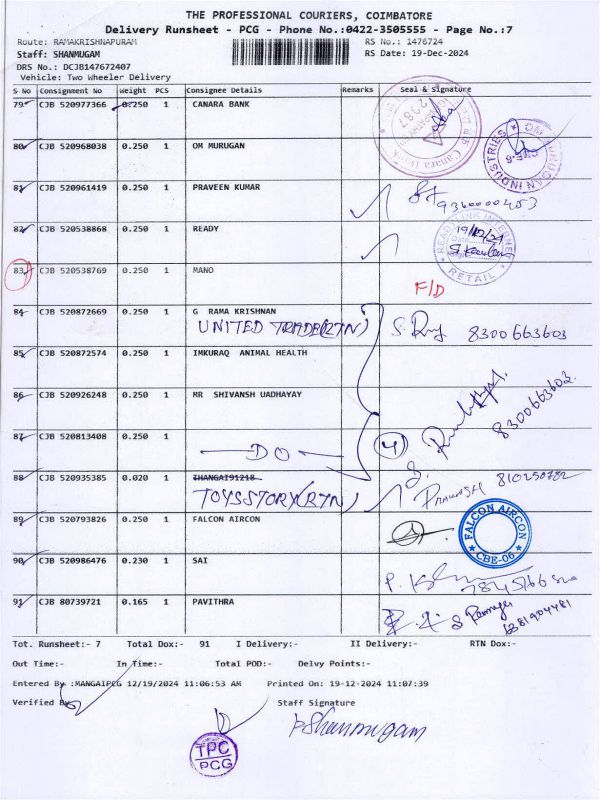 THE PROFESSIONAL COURIERS, COIMBATORE
Delivery Runsheet - PCG - Phone No.:0422-3505555 - Page No.:7
Route: RAMAKRISHNAPURAM RS No.: 1476724
Staff: SHANMUGAM RS Date: 19-Dec-2024
DRS No.: DCJB147672407
Vehicle: Two Wheeler Delivery
S No Consignment No Weight PCS Consignee Details Remarks Seal & Signature
79 CJB 520977366 0.250 1 CANARA BANK
Canara Bank
80 CJB 520968038 0.250 1 OM MURUGAN
OM MURUGAN INDUSTRIES
CBE-6
81 CJB 520961419 0.250 1 PRAVEEN KUMAR
9360000453
82 CJB 520538868 0.250 1 READY
19/12/24
RETAIL
83 CJB 520538769 0.250 1 MANO
F/D
84 CJB 520872669 0.250 1 G RAMA KRISHNAN
UNITED TRADE(RTN) 8300663603
85 CJB 520872574 0.250 1 IMKURAQ ANIMAL HEALTH
86 CJB 520926248 0.250 1 MR SHIVANSH UADHAYAY
8300663603
87 CJB 520813408 0.250 1
DO 4
88 CJB 520935385 0.020 1 THANGAI91218
TOYSSTORY(RTN)
89 CJB 520793826 0.250 1 FALCON AIRCON
FALCON AIRCON
CBE-06
90 CJB 520986476 0.230 1 SAI
91 CJB 80739721 0.165 1 PAVITHRA
Tot. Runsheet:- 7 Total Dox:- 91 I Delivery:- II Delivery:- RTN Dox:-
Out Time:- In Time:- Total POD:- Delvy Points:-
Entered By :MANGAIPCG 12/19/2024 11:06:53 AM Printed On: 19-12-2024 11:07:39
Verified By Staff Signature
P Shanmugam
TPC
PCG